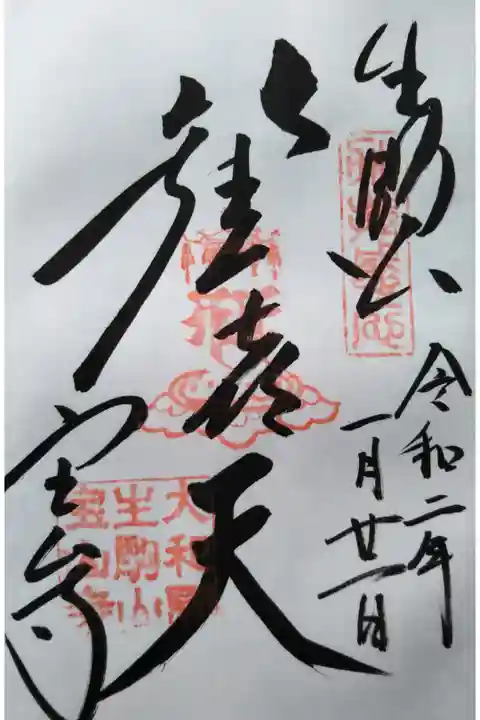 生駒山
令和二年
一月廿一日
歓喜天
宝山寺
大和国
生駒山
宝山寺